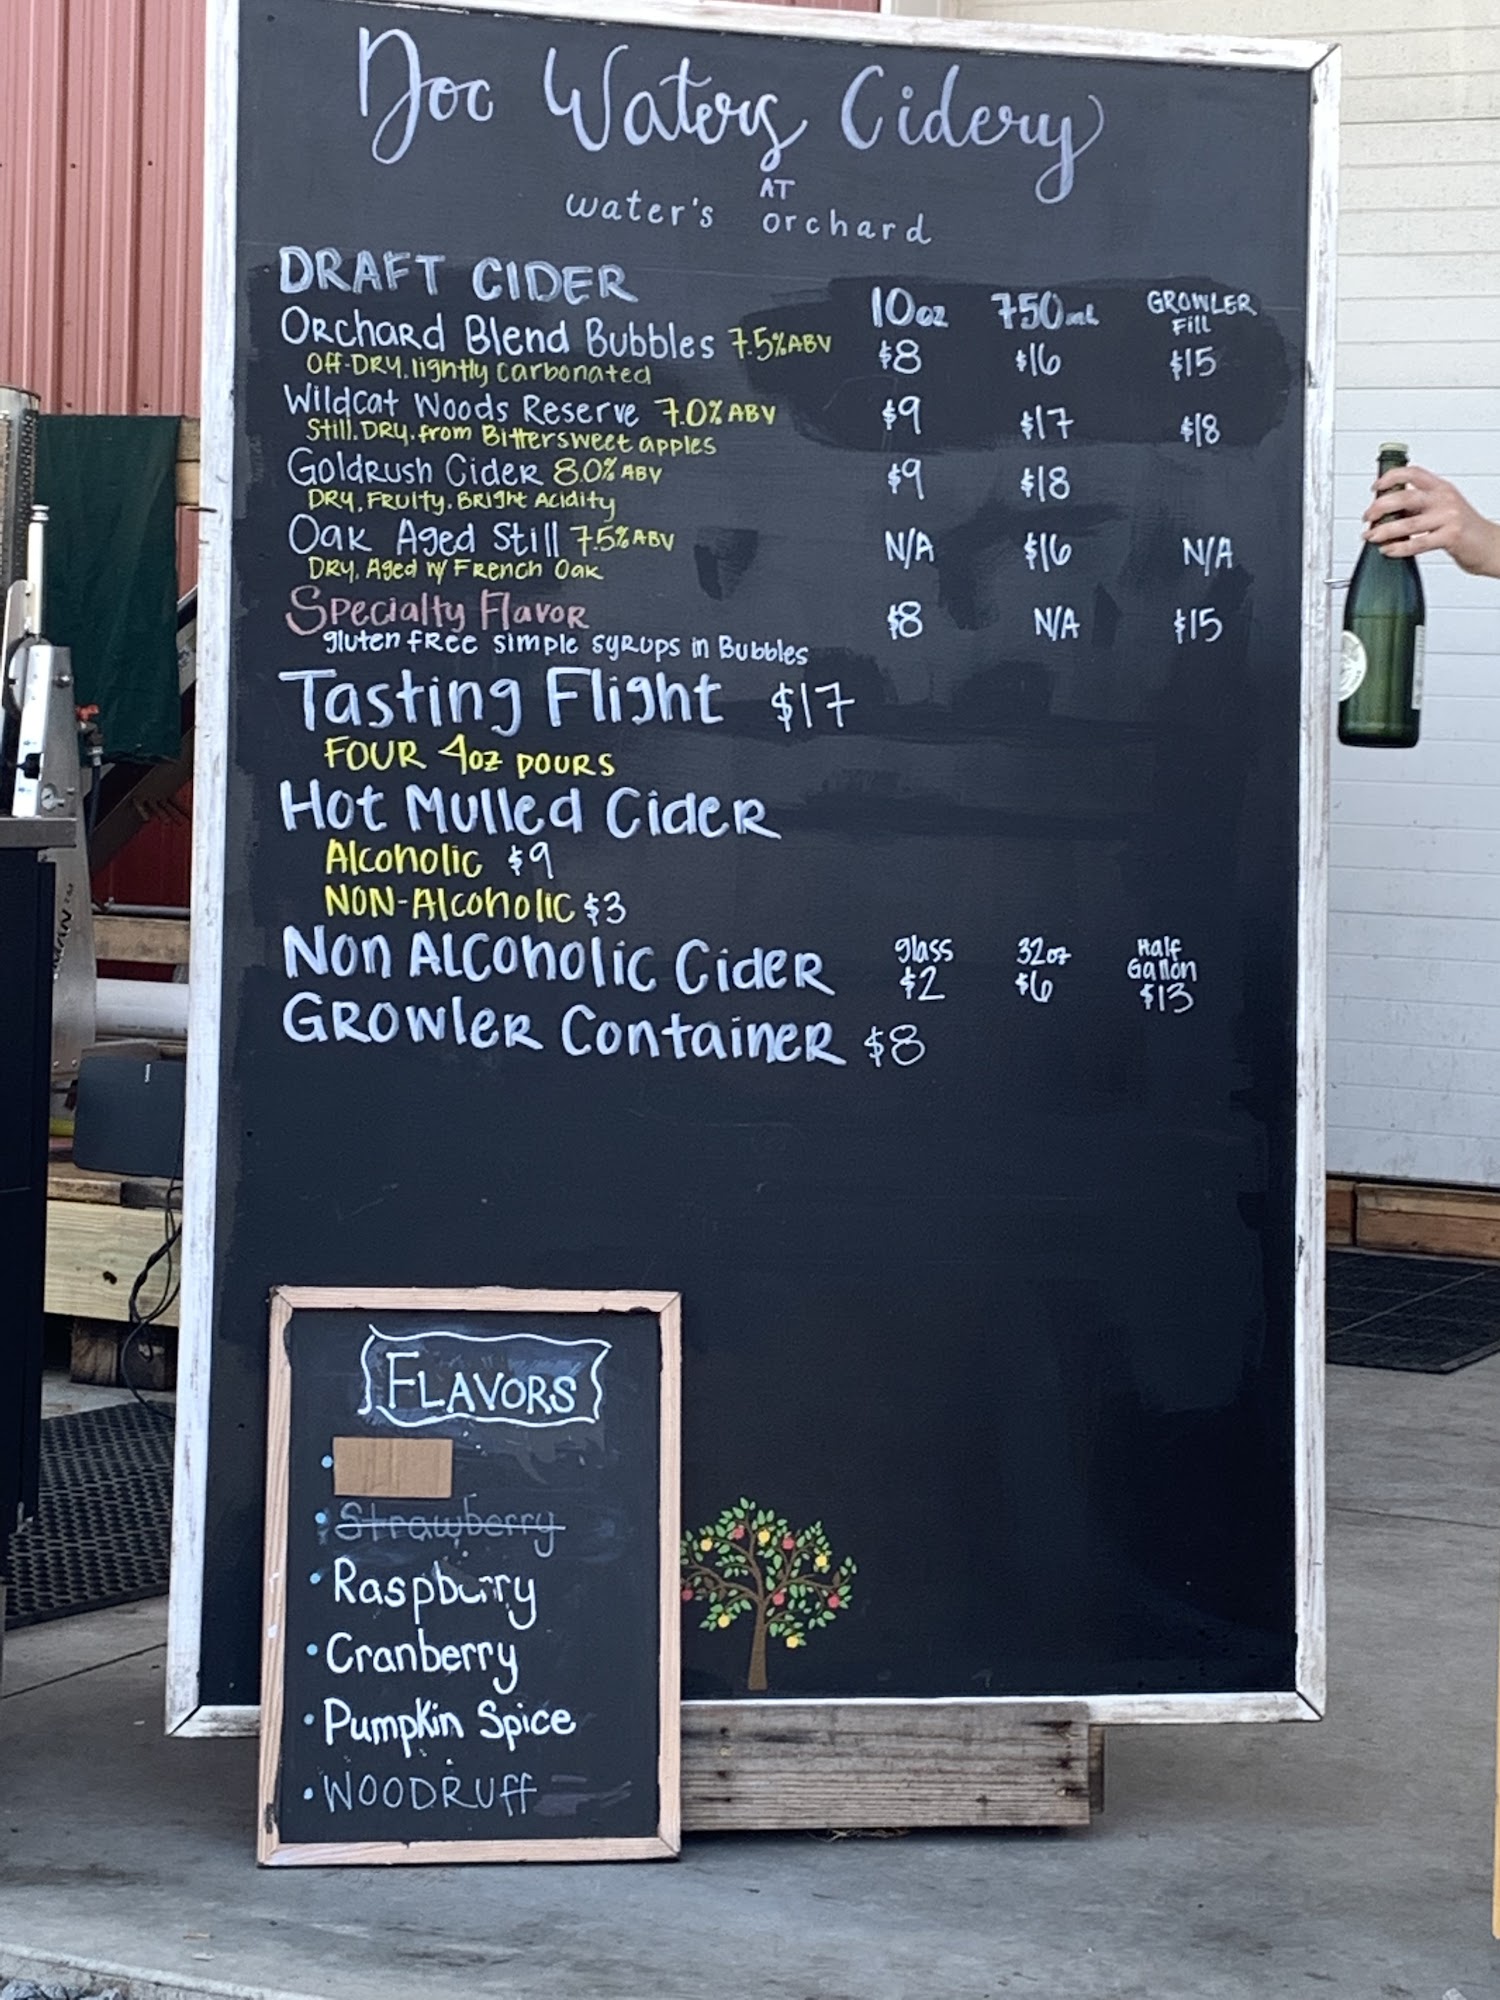 Doc Waters Cidery
AT
water's orchard
DRAFT CIDER 10oz 750mL GROWLER Fill
ORCHARD Blend Bubbles 7.5%ABV $8 $16 $15
Off-DRY, lightly carbonated
Wildcat Woods Reserve 7.0%ABV $9 $17 $18
Still, DRY, from Bittersweet apples
GoldRush Cider 8.0%ABV $9 $18
DRY, FRuity, BRIGht Acidity
Oak Aged Still 7.5%ABV N/A $16 N/A
DRY, Aged w/ FRench Oak
Specialty Flavor $8 N/A $15
gluten free simple syrups in Bubbles
Tasting Flight $17
FOUR 4oz pours
Hot Mulled Cider
Alcoholic $9
NON-Alcoholic $3
Non Alcoholic Cider glass $2 32oz $6 Half Gallon $13
GROWLER Container $8
FLAVORS
• Strawberry
• Raspberry
• Cranberry
• Pumpkin Spice
• WOODRUFF